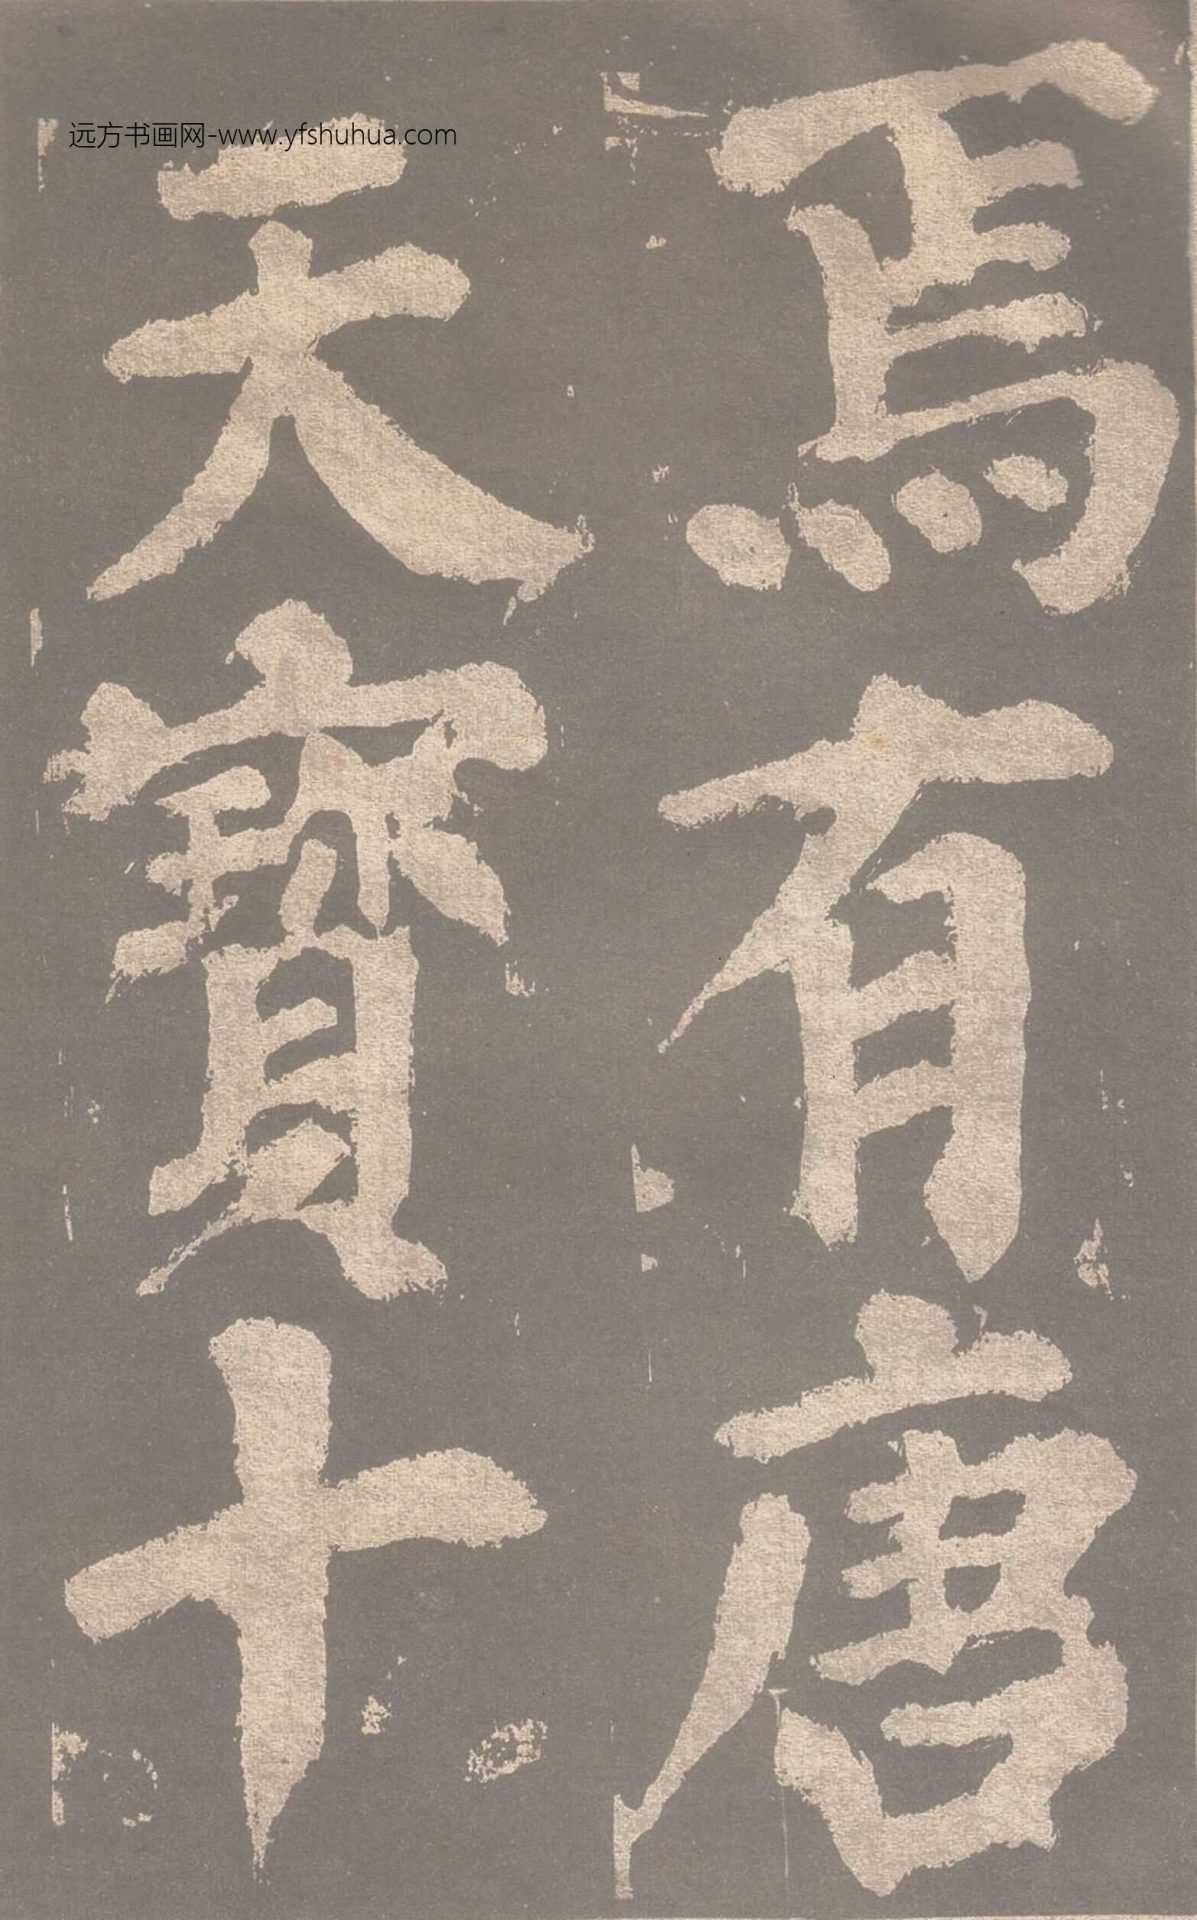 焉有唐
天寶十
远方书画网-www.yfshuhua.com